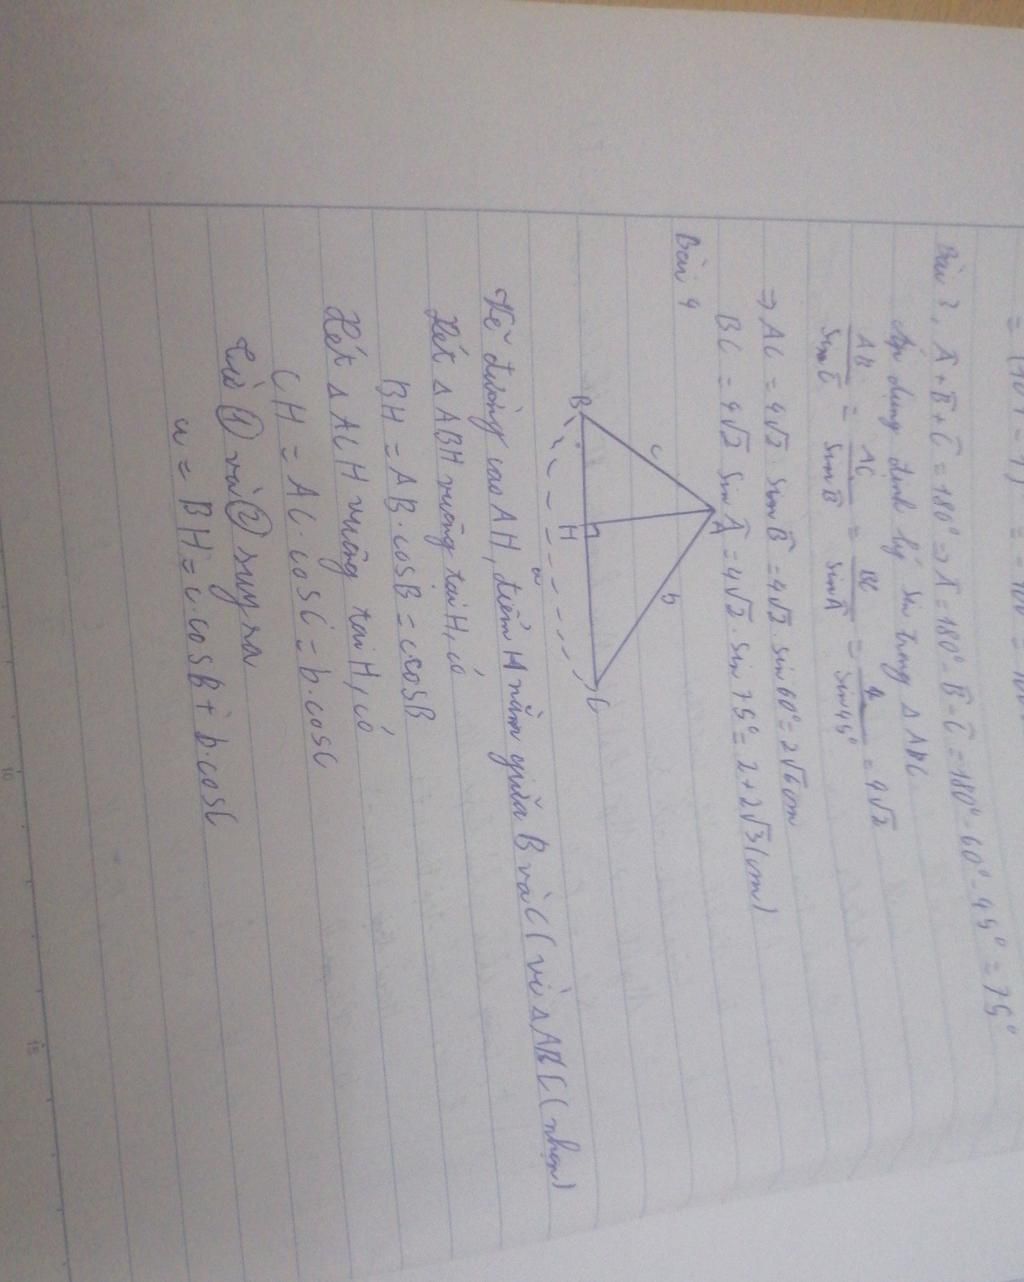 Bài 3, Â + B̂ + Ĉ = 180° ⇒ Â = 180° - B̂ - Ĉ = 180° - 60° - 45° = 75°
Áp dụng định lý sin trong Δ ABC
AB/sinĈ = AC/sinB̂ = BC/sinÂ = 4/sin45° = 4√2
⇒ AC = 4√2 . sinB̂ = 4√2 . sin60° = 2√6 cm
BC = 4√2 sinÂ = 4√2 . sin 75° = 2+2√3 (cm)
Bài 4
A
c
b
B
H
C
a
Kẻ đường cao AH, điểm H nằm giữa B và C (vì Δ ABC (nhọn)
Xét Δ ABH vuông tại H, có
BH = AB . cosB = c cosB
Xét Δ ACH vuông tại H, có
CH = AC . cosC = b . cosC
Từ ① và ② suy ra
a = BH = c . cosB + b . cosC
10
15